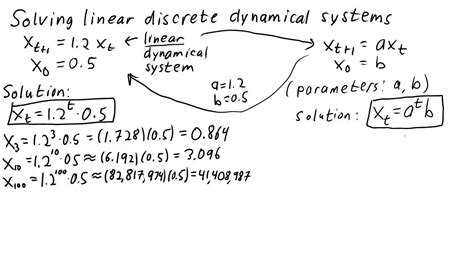 Solving linear discrete dynamical systems
x_{t+1} = 1.2 x_t ← linear
x_0 = 0.5 dynamical
system
x_{t+1} = a x_t
x_0 = b
a = 1.2
b = 0.5
(parameters: a, b)
Solution:
x_t = 1.2^t · 0.5
solution: x_t = a^t b
x_3 = 1.2^3 · 0.5 = (1.728)(0.5) = 0.864
x_10 = 1.2^10 · 0.5 ≈ (6.192)(0.5) = 3.096
x_100 = 1.2^100 · 0.5 ≈ (82,817,974)(0.5) = 41,408,987